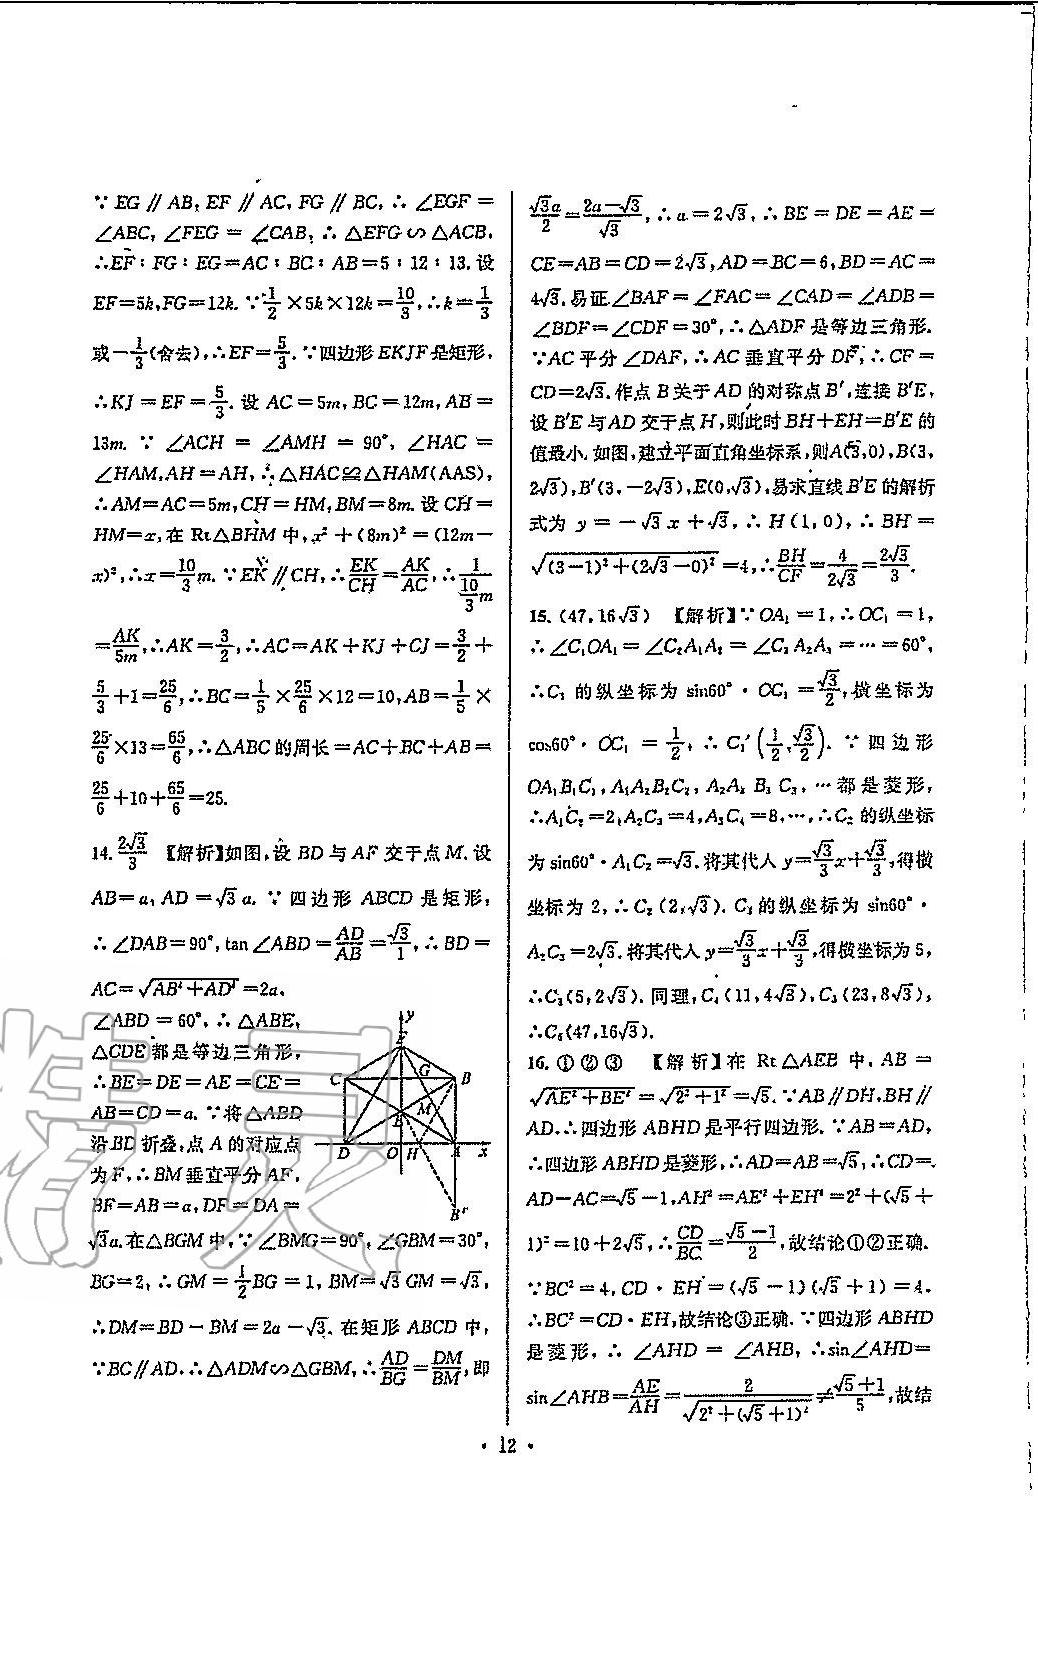 ∵EG∥AB,EF∥AC,FG∥BC,∴∠EGF=
∠ABC,∠FEG=∠CAB,∴△EFG∽△ACB.
∴EF∶FG∶EG=AC∶BC∶AB=5∶12∶13.设
EF=5k,FG=12k.∵1/2×5k×12k=10/3,∴k=1/3
或-1/3(舍去),∴EF=5/3.∵四边形EKJF是矩形,
∴KJ=EF=5/3.设AC=5m,BC=12m,AB=
13m.∵∠ACH=∠AMH=90°,∠HAC=
∠HAM,AH=AH,∴△HAC≌△HAM(AAS),
∴AM=AC=5m,CH=HM,BM=8m.设CH=
HM=x,在Rt△BHM中,x²+(8m)²=(12m-
x)²,∴x=10/3 m.∵EK∥CH,∴EK/CH=AK/AC,∴1/(10/3 m)
=AK/5m,∴AK=3/2,∴AC=AK+KJ+CJ=3/2+
5/3+1=25/6,∴BC=1/5×25/6×12=10,AB=1/5×
25/6×13=65/6,∴△ABC的周长=AC+BC+AB=
25/6+10+65/6=25.
14.2√3/3 【解析】如图,设BD与AF交于点M.设
AB=a,AD=√3a.∵四边形ABCD是矩形,
∴∠DAB=90°,tan∠ABD=AD/AB=√3/1,∴BD=
AC=√(AB²+AD²)=2a.
∠ABD=60°,∴△ABE,
△CDE都是等边三角形,
∴BE=DE=AE=CE=
AB=CD=a.∵将△ABD
沿BD折叠,点A的对应点
为F,∴BM垂直平分AF,
BF=AB=a,DF=DA=
√3a.在△BGM中,∵∠BMG=90°,∠GBM=30°,
BG=2,∴GM=1/2BG=1,BM=√3GM=√3,
∴DM=BD-BM=2a-√3.在矩形ABCD中,
∵BC∥AD.∴△ADM∽△GBM,∴AD/BG=DM/BM,即
y
F
G
C
B
M
E
D
O
H
A
x
B′
√3a/2=(2a-√3)/√3,∴a=2√3,∴BE=DE=AE=
CE=AB=CD=2√3,AD=BC=6,BD=AC=
4√3.易证∠BAF=∠FAC=∠CAD=∠ADB=
∠BDF=∠CDF=30°,∴△ADF是等边三角形.
∵AC平分∠DAF,∴AC垂直平分DF,∴CF=
CD=2√3.作点B关于AD的对称点B′,连接B′E,
设B′E与AD交于点H,则此时BH+EH=B′E的
值最小.如图,建立平面直角坐标系,则A(3,0),B(3,
2√3),B′(3,-2√3),E(0,√3),易求直线B′E的解析
式为y=-√3x+√3,∴H(1,0),∴BH=
√((3-1)²+(2√3-0)²)=4,∴BH/CF=4/2√3=2√3/3.
15.(47,16√3) 【解析】∵OA₁=1,∴OC₁=1,
∴∠C₁OA₁=∠C₂A₁A₂=∠C₃A₂A₃=…=60°,
∴C₁的纵坐标为sin60°·OC₁=√3/2,横坐标为
cos60°·OC₁=1/2,∴C₁(1/2,√3/2).∵四边形
OA₁B₁C₁,A₁A₂B₂C₂,A₂A₃B₃C₃,…都是菱形,
∴A₁C₂=2,A₂C₃=4,A₃C₄=8,…,∴C₂的纵坐标
为sin60°·A₁C₂=√3.将其代入y=√3/3x+√3/3,得横
坐标为2,∴C₂(2,√3).C₃的纵坐标为sin60°·
A₂C₃=2√3.将其代入y=√3/3x+√3/3,得横坐标为5,
∴C₃(5,2√3).同理,C₄(11,4√3),C₅(23,8√3),
∴C₆(47,16√3).
16.①②③ 【解析】在Rt△AEB中,AB=
√(AE²+BE²)=√(2²+1²)=√5.∵AB∥DH,BH∥
AD,∴四边形ABHD是平行四边形.∵AB=AD,
∴四边形ABHD是菱形,∴AD=AB=√5,∴CD=
AD-AC=√5-1,AH²=AE²+EH²=2²+(√5+
1)²=10+2√5,∴CD/BC=(√5-1)/2,故结论①②正确.
∵BC²=4,CD·EH=(√5-1)(√5+1)=4.
∴BC²=CD·EH,故结论③正确.∵四边形ABHD
是菱形,∴∠AHD=∠AHB,∴sin∠AHD=
sin∠AHB=AE/AH=2/√(2²+(√5+1)²)≠(√5+1)/5,故结
·12·